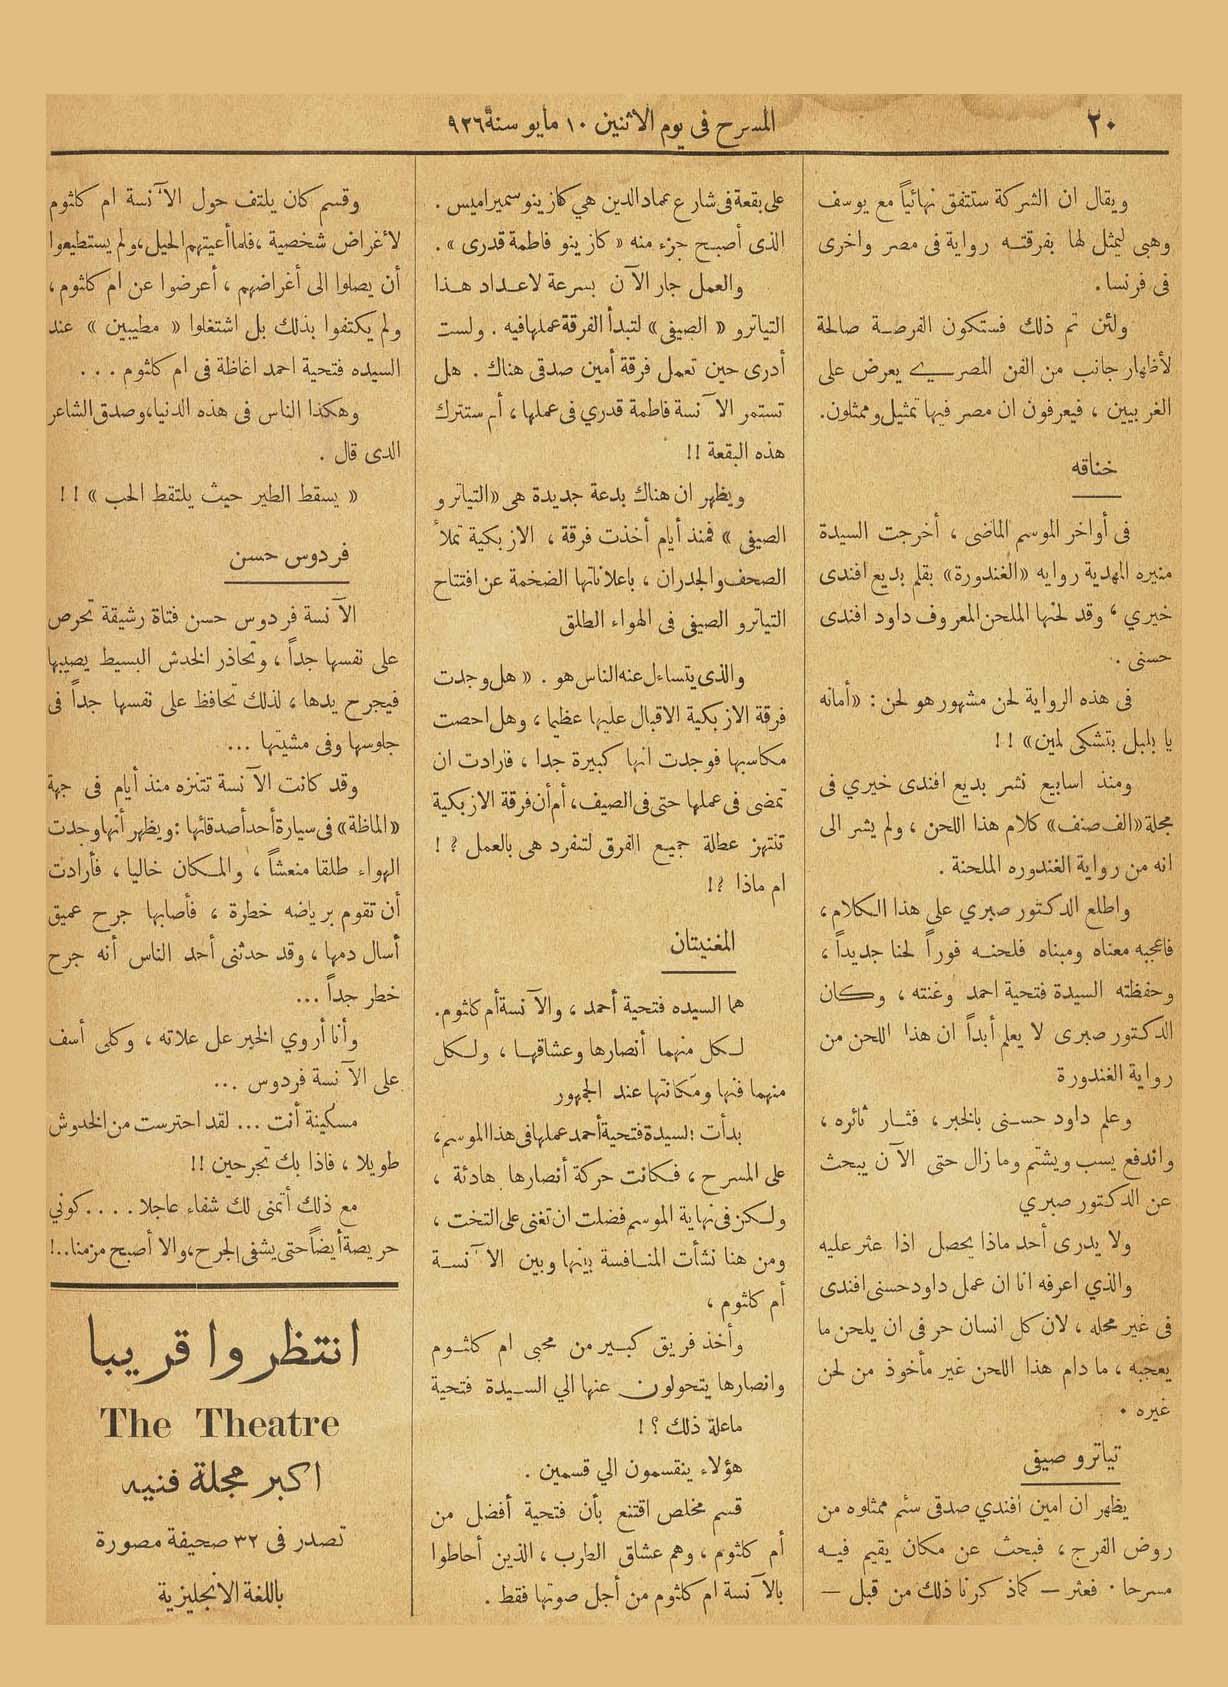 ٢٠
المسرح فى يوم الاثنين ١٠ مايو سنة ٩٢٦
ويقال ان الشركة ستتفق نهائياً مع يوسف
وهبى ليمثل لها بفرقته رواية فى مصر واخرى
فى فرنسا .
ولئن تم ذلك فستكون الفرصة صالحة
لأظهار جانب من الفن المصرى يعرض على
الغربيين ، فيعرفون ان مصر فيها تمثيل وممثلون.
خناقه
فى أواخر الموسم الماضى ، أخرجت السيدة
منيره المهدية روايه «الغندورة» بقلم بديع افندى
خيري ، وقد لحنها الملحن المعروف داود افندى
حسنى .
فى هذه الرواية لحن مشهور هو لحن : «أمانه
يا بلبل بتشكى لمين» ! !
ومنذ اسابيع نشر بديع افندى خيري فى
مجلة «الف صنف» كلام هذا اللحن ، ولم يشر الى
انه من رواية الغندوره الملحنة .
واطلع الدكتور صبري على هذا الكلام ،
فاعجبه معناه ومبناه فلحنه فوراً لحنا جديداً ،
وحفظته السيدة فتحية احمد وغنته ، وكان
الدكتور صبرى لا يعلم أبداً ان هذا اللحن من
رواية الغندورة
وعلم داود حسنى بالخبر ، فثار ثائره ،
واندفع يسب ويشتم وما زال حتى الآن يبحث
عن الدكتور صبري
ولا يدرى أحد ماذا يحصل اذا عثر عليه
والذي اعرفه انا ان عمل داود حسنى افندى
فى غير محله ، لان كل انسان حر فى ان يلحن ما
يعجبه ، ما دام هذا اللحن غير مأخوذ من لحن
غيره .
تياترو صيفى
يظهر ان امين افندي صدقى سئم ممثلوه من
روض الفرج ، فبحث عن مكان يقيم فيه
مسرحا . فعثر — كما ذكرنا ذلك من قبل —
على بقعة فى شارع عماد الدين هي كازينو سميراميس .
الذى أصبح جزء منه « كازينو فاطمة قدرى » .
والعمل جار الآن بسرعة لاعداد هذا
التياترو « الصيفى » لتبدأ الفرقة عملها فيه . ولست
أدرى حين تعمل فرقة أمين صدقى هناك . هل
تستمر الآنسة فاطمة قدري فى عملها ، أم ستترك
هذه البقعة !!
ويظهر ان هناك بدعة جديدة هى «التياترو
الصيفى » فمنذ أيام أخذت فرقة ، الازبكية تملأ
الصحف والجدران ، باعلاناتها الضخمة عن افتتاح
التياترو الصيفى فى الهواء الطلق
والذى يتساءل عنه الناس هو . « هل وجدت
فرقة الازبكية الاقبال عليها عظيما ، وهل احصت
مكاسبها فوجدت انها كبيرة جدا ، فارادت ان
تمضى فى عملها حتى فى الصيف ، أم أن فرقة الازبكية
تنتهز عطلة جميع الفرق لتنفرد هى بالعمل ؟ !
ام ماذا ؟!
المغنيتان
هما السيده فتحية أحمد ، والآنسة أم كلثوم.
لكل منهما أنصارها وعشاقها ، ولكل
منهما فنها ومكانتها عند الجمهور
بدأت السيدة فتحية أحمد عملها فى هذا الموسم ،
على المسرح ، فكانت حركة أنصارها هادئة ،
ولكن فى نهاية الموسم فضلت ان تغنى على التخت ،
ومن هنا نشأت المنافسة بينها وبين الآنسة
أم كلثوم ،
وأخذ فريق كبير من محبى ام كلثوم
وانصارها يتحولون عنها الي السيدة فتحية
ماعلة ذلك ؟ !
هؤلاء ينقسمون الي قسمين .
قسم مخلص اقتنع بأن فتحية أفضل من
أم كلثوم ، وهم عشاق الطرب ، الذين أحاطوا
بالآنسة ام كلثوم من أجل صوتها فقط .
وقسم كان يلتف حول الآنسة ام كلثوم
لأغراض شخصية ، فلما أعيتهم الحيل ، ولم يستطيعوا
أن يصلوا الى أغراضهم ، أعرضوا عن ام كلثوم ،
ولم يكتفوا بذلك بل اشتغلوا « مطيبين » عند
السيده فتحية احمد اغاظة فى ام كلثوم . . .
وهكذا الناس فى هذه الدنيا ، وصدق الشاعر
الدى قال .
« يسقط الطير حيث يلتقط الحب » ! !
فردوس حسن
الآنسة فردوس حسن فتاة رشيقة تحرص
على نفسها جداً ، وتحاذر الخدش البسيط يصيبها
فيجرح يدها ، لذلك تحافظ على نفسها جداً فى
جلوسها وفى مشيتها ...
وقد كانت الآنسة تتنزه منذ أيام فى جهة
«الماظة» فى سيارة أحد أصدقائها : ويظهر أنها وجدت
الهواء طلقا منعشاً ، والمكان خاليا ، فأرادت
أن تقوم برياضه خطرة ، فأصابها جرح عميق
أسال دمها ، وقد حدثنى أحد الناس أنه جرح
خطر جداً ...
وأنا أروي الخبر عل علاته ، وكلى أسف
على الآنسة فردوس ...
مسكينة أنت ... لقد احترست من الخدوش
طويلا ، فاذا بك تجرحين !!
مع ذلك أتمنى لك شفاء عاجلا . . . . كوني
حريصة أيضاً حتى يشفى الجرح ، والا أصبح مزمنا..!
انتظروا قريبا
The Theatre
اكبر مجلة فنيه
تصدر فى ٣٢ صحيفة مصورة
باللغة الانجليزية